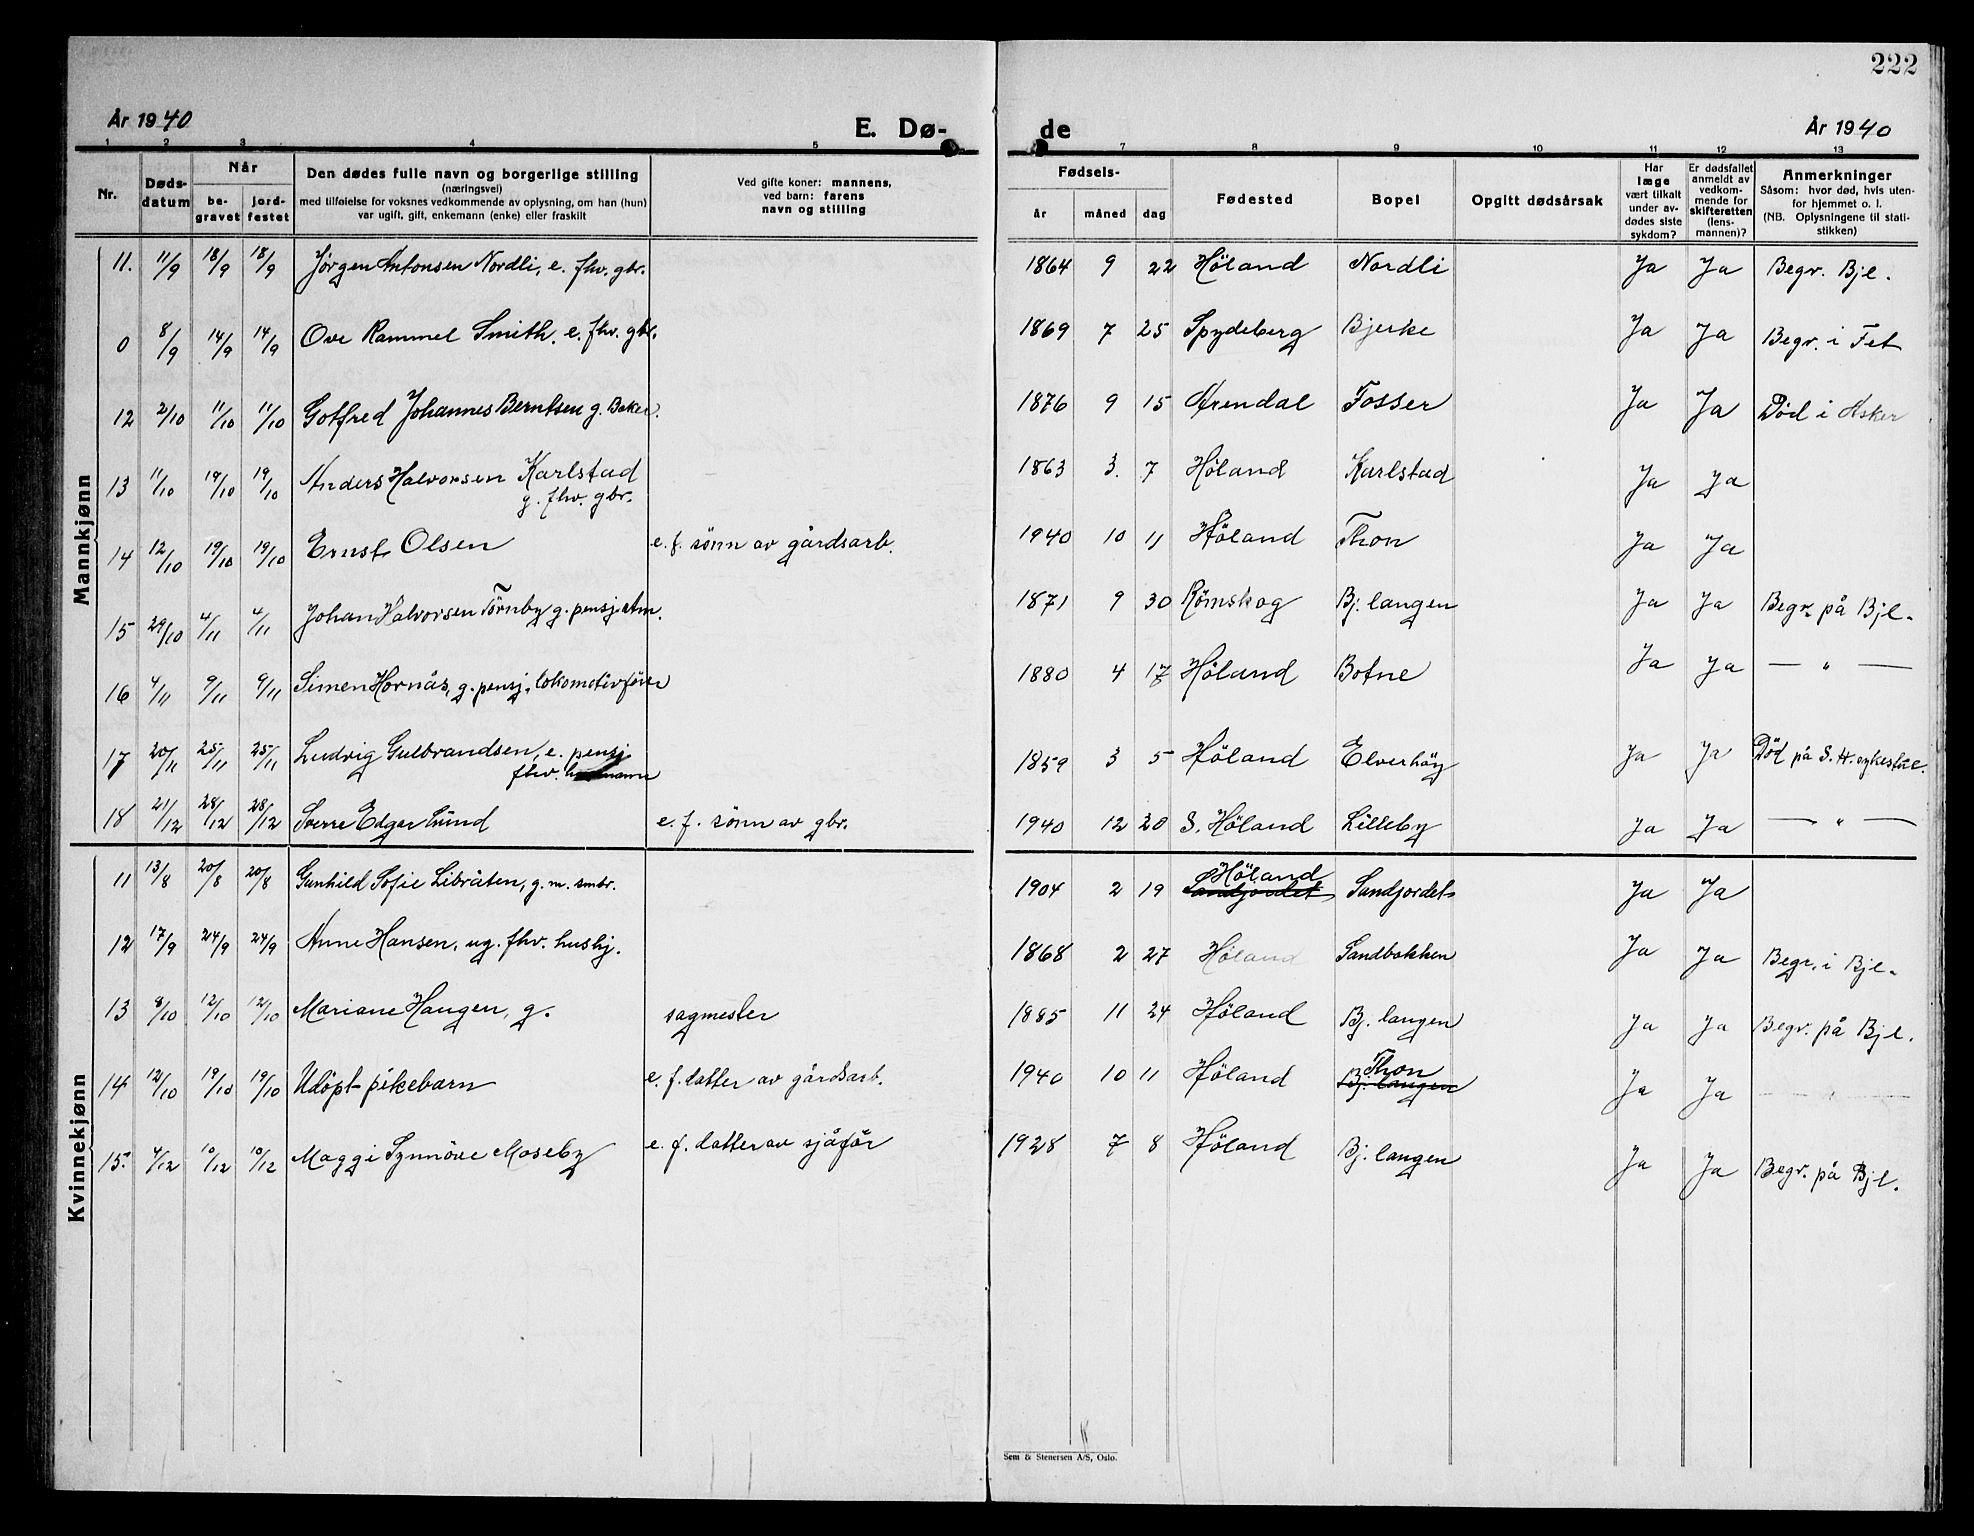 222
År 1940 E. Dø- de År 1940
1 2 3 4 5 7 8 9 10 11 12 13
Nr.
Døds-
datum
Når
be-
gravet
jord-
festet
Den dødes fulle navn og borgerlige stilling
(næringsvei)
med tilføielse for voksnes vedkommende av oplysning, om han (hun)
var ugift, gift, enkemann (enke) eller fraskilt
Ved gifte koner: mannens,
ved barn: farens
navn og stilling
Fødsels-
år måned dag
Fødested
Bopel
Opgitt dødsårsak
Har
læge
vært tilkalt
under av-
dødes siste
sykdom?
Er dødsfallet
anmeldt av
vedkom-
mende for
skifteretten
(lens-
mannen)?
Anmerkninger
Såsom: hvor død, hvis uten-
for hjemmet o. l.
(NB. Oplysningene til stati-
stikken)
Mannkjønn
11. 11/9 18/9 18/9 Jørgen Antonsen Nordli, e. fhv. gbr. 1864 9 22 Höland Nordli Ja Ja Begr. Bjl.
0 8/9 14/9 14/9 Ove Rammel Smith, e. fhv. gbr. 1869 7 25 Spydeberg Bjerke Ja Ja Begr. i Fet
12 2/10 11/10 11/10 Gotfred Johannes Berntsen g. Baker. 1876 9 15 Arendal Fosser Ja Ja Död i Asker
13 11/10 19/10 19/10 Anders Halvorsen Karlstad 1863 3. 7 Höland Karlstad Ja Ja
g. fhv. gbr.
14 12/10 19/10 19/10 Ernst Olsen e. f. sönn av gårdsarb. 1940 10 11 Höland Thon Ja Ja
15 29/10 4/11 4/11 Johan Halvorsen Törnby g. pensj. 1871 9 30 Römskog Bj. langen Ja Ja Begr. på Bjl.
16 4/11 9/11 9/11 Simen Hornås, g. pensj. lokomotivförer 1880 4 17 Höland Botne Ja Ja — " —
17 20/11 25/11 25/11 Ludvig Gulbrandsen, e. pensj 1859 3 5 Höland Elverhöy Ja Ja Död på S. H. sykestue.
fhv.
18 21/12 28/12 28/12 Sverre Edgar Lund e. f. sönn av gbr. 1940 12 20 S. Höland Lilleby Ja Ja — " —
Kvinnekjønn
11 13/8 20/8 20/8 Gunhild Sofie Libråten, g. m. smbr. 1904 2 19 Höland Sandjordet Sandjordet Ja Ja
12 17/9 24/9 24/9 Anne Hansen, ug. fhv. hushj. 1868 2 27 Höland Sandbakken Ja Ja Begr. i Bjl.
13 8/10 12/10 12/10 Mariane Haugen, g. sagmester 1885 11 24 Höland Bj. langen Ja Ja Begr. på Bjl.
14 12/10 19/10 19/10 Udöpt pikebarn e. f. datter av gårdsarb. 1940 10 11 Höland Thon Bj. langen Ja Ja — " —
15. 4/12 10/12 10/12 Maggi Synnöve Moseby e. f. datter av sjåför 1928 7 8 Höland Bj. langen Ja Ja Begr. på Bjl.
Sem & Stenersen A/S, Oslo.